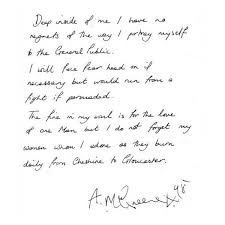 Deep inside of me I have no
regrets of the way I portray myself
to the General Public.
I will face fear head on if
necessary but would run from a
fight if persuaded.
The fire in my soul is for the love
of one Man but I do not forget my
women whom I adore as they burn
daily from Cheshire to Gloucester.
A. McQueen 95